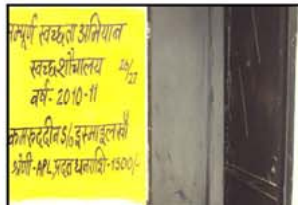 सम्पूर्ण स्वच्छता अभियान
स्वच्छ शौचालय 26/27
वर्ष - 2010-11
कमरुददीन S/o इस्माइल खाँ
श्रेणी - APL, प्रदत धनराशि - 1500/-